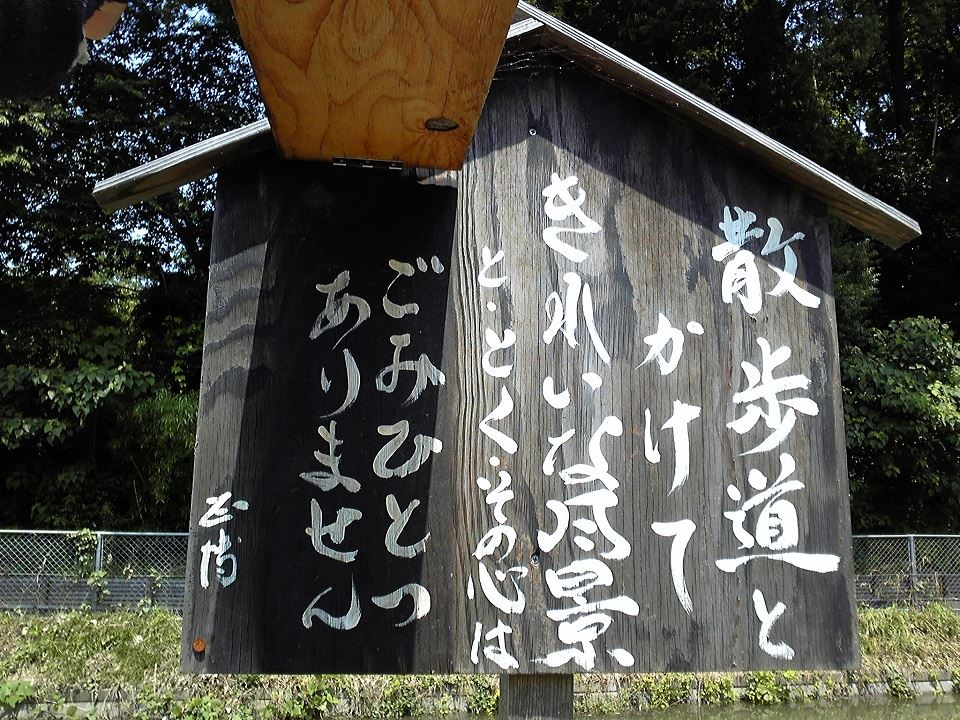 散歩道と
かけて
きれいな風景
と・とく・その心は
ごみひとつ
ありません